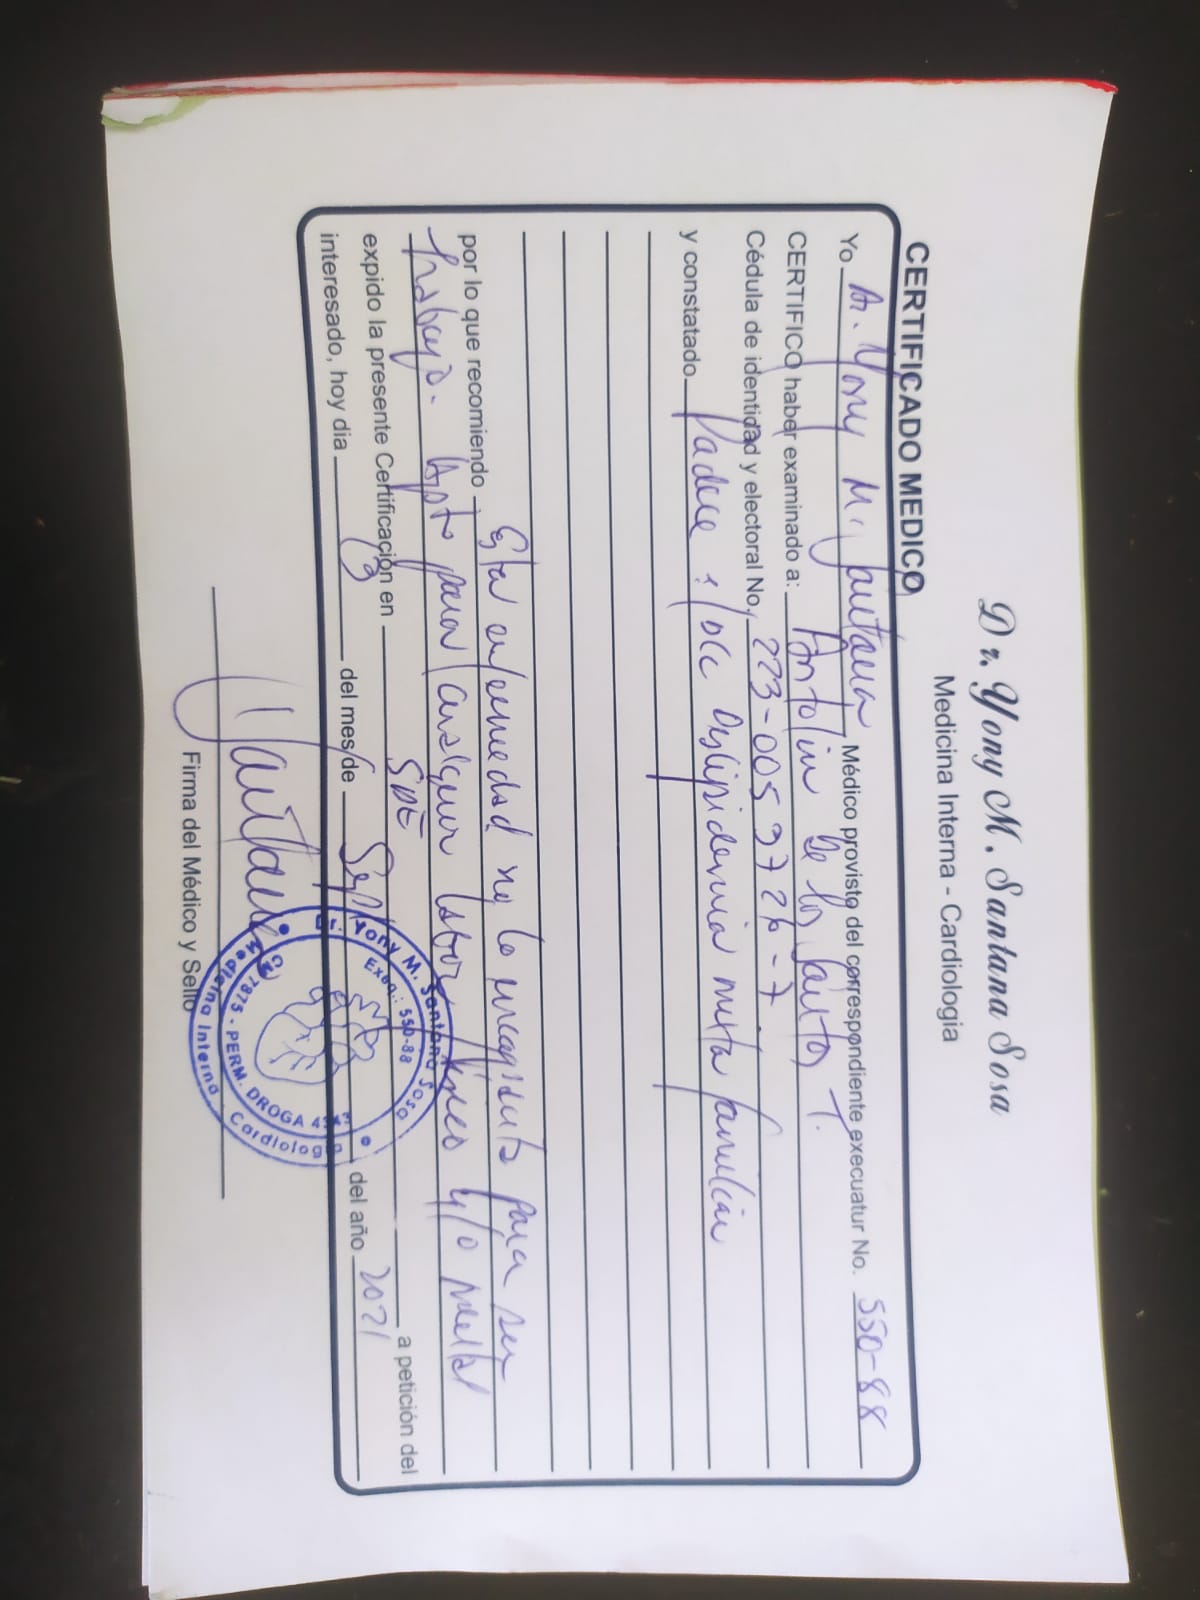 Dr. Yony M. Santana Sosa
Medicina Interna - Cardiologia
CERTIFICADO MEDICO
Yo Dr. Yony M. Santana Médico provisto del correspondiente execuatur No. 550-88
CERTIFICO haber examinado a: Antolin De los Santos T.
Cédula de identidad y electoral No. 223-0059726-7
y constatado Padece : Dislipidemia mixta familiar
por lo que recomiendo Esta enfermedad no lo para ser
trabajo. Apto para cualquier labor y/o
expido la presente Certificación en SDE a petición del
interesado, hoy dia 13 del mes de Sept del año 2021
Santana
Firma del Médico y Sello
Dr. Yony M. Santana Sosa
Exeq.: 550-88
7875 - PERM. DROGA
Medicina Interna Cardiolog